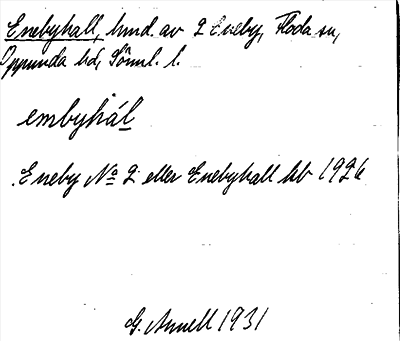 Enebyhall, hmd. av 2 Eneby, Floda sn,
Oppunda hd, Söml. l.
embyhál
Eneby No 2 eller Enebyhall hb 1926
G. Annell 1931